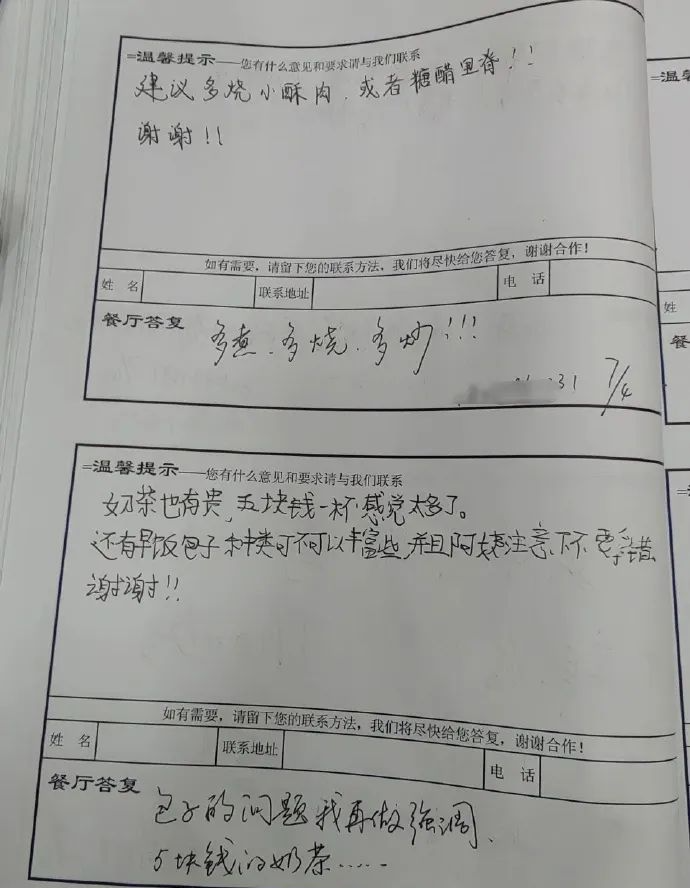 =温馨提示——您有什么意见和要求请与我们联系
建议多烧小酥肉、或者糖醋里脊!!
谢谢!!
如有需要，请留下您的联系方法，我们将尽快给您答复，谢谢合作!
姓 名 联系地址 电 话
餐厅答复
多煮、多烧、多炒!!!
31 7/4
=温馨提示——您有什么意见和要求请与我们联系
奶茶也有贵，五块钱一杯感觉太多了。
还有早饭包子种类可不可以丰富些，并且阿姨注意下不要拿错
谢谢!!
如有需要，请留下您的联系方法，我们将尽快给您答复，谢谢合作!
姓 名 联系地址 电 话
餐厅答复
包子的问题我再做强调、
5块钱的奶茶……
=温馨
姓
餐
=温馨